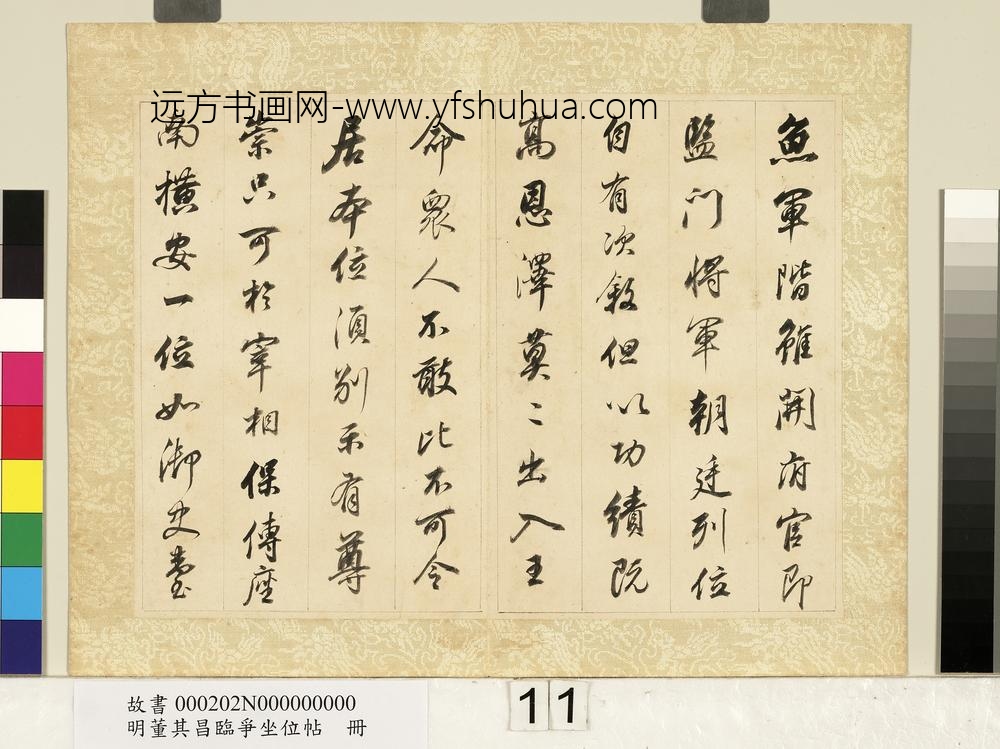 远方书画网-www.yfshuhua.com
魚軍階雖開府官即
監門將軍朝廷列位
自有次叙但以功績既
高恩澤莫〻出入王
命眾人不敢比不可令
居本位須別示有尊
崇只可於宰相保傅座
南橫安一位如御史臺
故書 000202N000000000
明董其昌臨爭坐位帖 冊
11